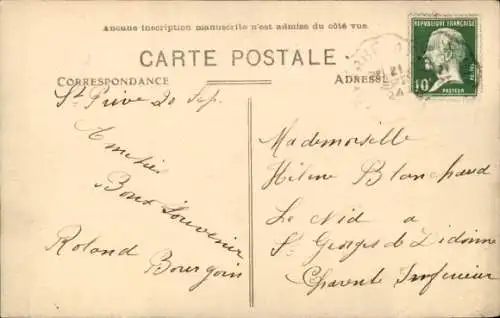 Aucune inscription manuscrite n'est admise du côté vue
CARTE POSTALE
CORRESPONDANCE
ADRESSE
REPUBLIQUE FRANÇAISE
10c
PASTEUR
21
24
St Privé 20 Sep.
Amitiés
Bons Souvenir
Roland
Bourgoin
Mademoiselle
Hélène Blanchaud
Le Nid a
St Georges de Didonne
Charente Inférieur